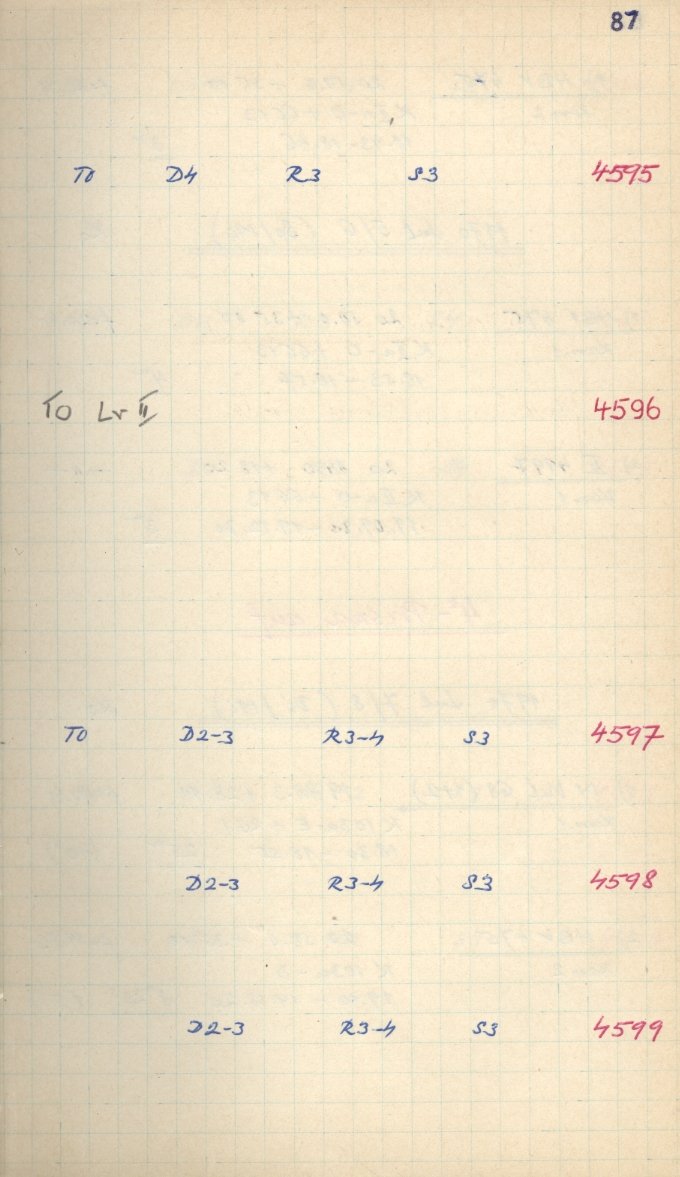 87
To D4 R3 S3 4595
To Lv II 4596
To D2-3 R3-4 S3 4597
D2-3 R3-4 S3 4598
D2-3 R3-4 S3 4599